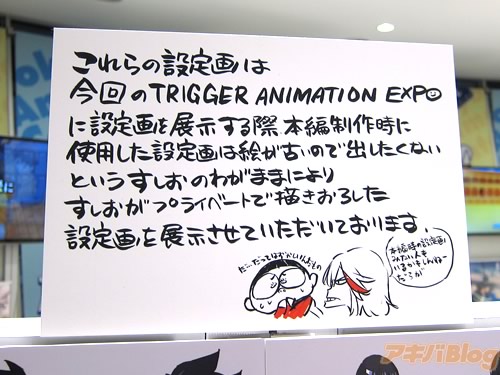 これらの設定画は
今回のTRIGGER ANIMATION EXPO
に設定画を展示する際 本編制作時に
使用した設定画は絵が古いので出したくない
というすしおのわがままにより
すしおがプライベートで描きおろした
設定画を展示させていただいております。
だーだってはずかしいんだもの
本編時の設定画
みたい人も
いるかもしんねー
だろが
アキバBlog